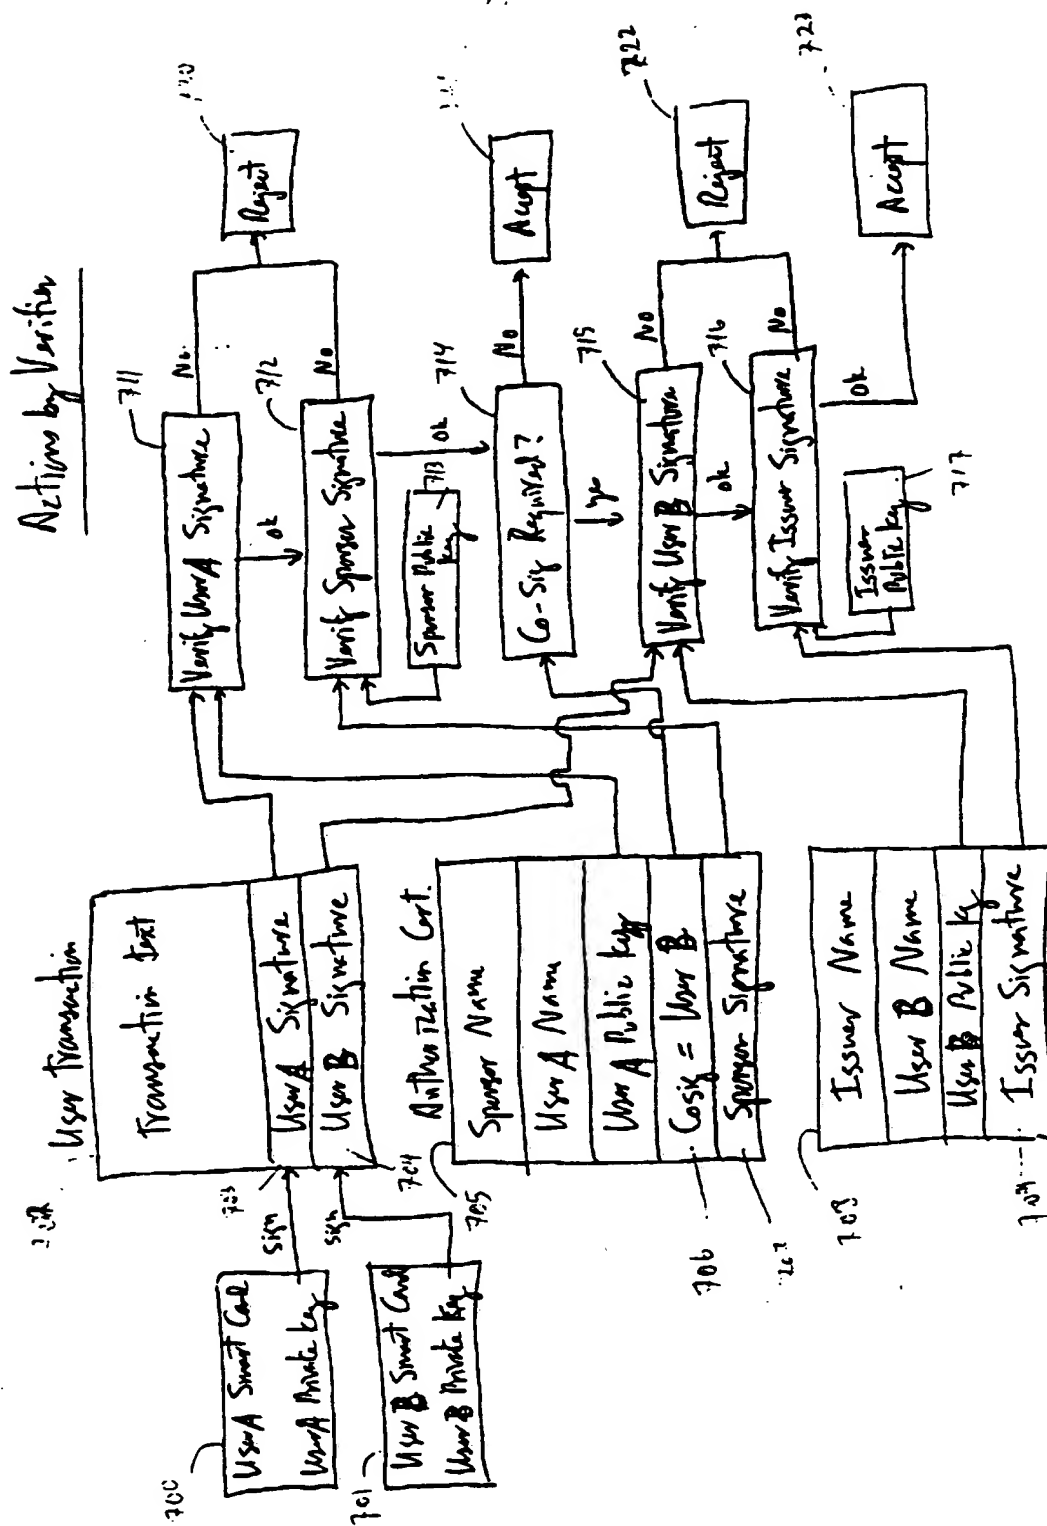 Actions by Verifier
User Transaction
Transaction Text
User A Signature
User B Signature
703
704
700
User A Smart Card
User A Private Key
sign
701
User B Smart Card
User B Private Key
sign
Authorization Cert.
705
Sponsor Name
User A Name
User A Public Key
Cosig = User B
Sponsor Signature
706
708
Issuer Name
User B Name
User B Public Key
Issuer Signature
709
711
Verify User A Signature
No.
ok
712
Verify Sponsor Signature
No
ok
Reject
713
Sponsor Public
Key
714
Co-Sig Required?
No
Accept
Yes
715
Verify User B Signature
No
ok
716
Verify Issuer Signature
No
ok
Reject
722
Issuer
Public Key
717
Accept
723